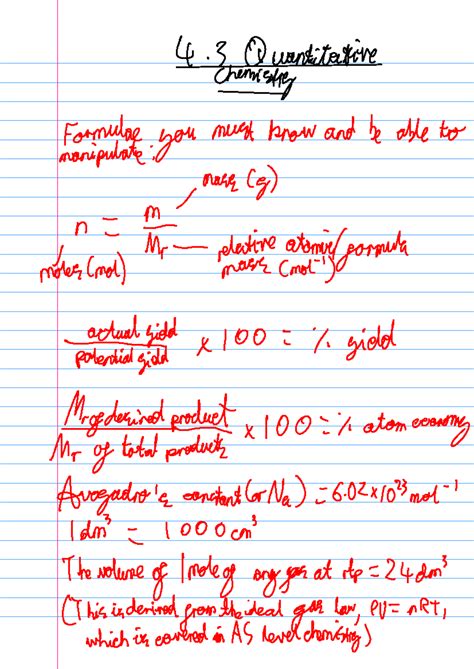 4.3 Quantitative
Chemistry
Formulae you must know and be able to
manipulate:
mass (g)
n = m / Mr
relative atomic/formula
mass (mol⁻¹)
moles (mol)
actual yield / potential yield × 100 = % yield
Mr of desired product / Mr of total products × 100 = % atom economy
Avogadro's constant (or Na) = 6.02 × 10²³ mol⁻¹
1 dm³ = 1000 cm³
The volume of 1 mole of any gas at rtp = 24 dm³
(This is derived from the ideal gas law, PV = nRT,
which is covered in AS level chemistry)